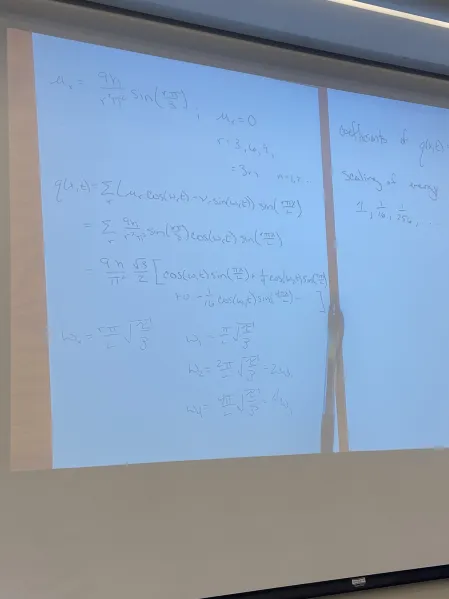 μᵣ = 9h/r²π² sin(rπ/3) ; μᵣ = 0
r = 3, 6, 9,
= 3n, n = 1, 2...
q(x,t) = Σᵣ (μᵣ cos(ωᵣt) - νᵣ sin(ωᵣt)) sin(rπx/L)
= Σᵣ 9h/r²π² sin(rπ/3) cos(ωᵣt) sin(rπx/L)
= 9h/π² √3/2 [ cos(ω₁t) sin(πx/L) + 1/4 cos(ω₂t) sin(
+ 0 - 1/16 cos(ω₄t) sin( ... ]
ωᵣ = rπ/L √ ω₁ = π/L √
ω₂ = 2π/L √ = 2ω₁
ω₄ = 4π/L √ = 4ω₁
coefficients of q(x,t)
scaling of energy
1, 1/16, 1/256, ...